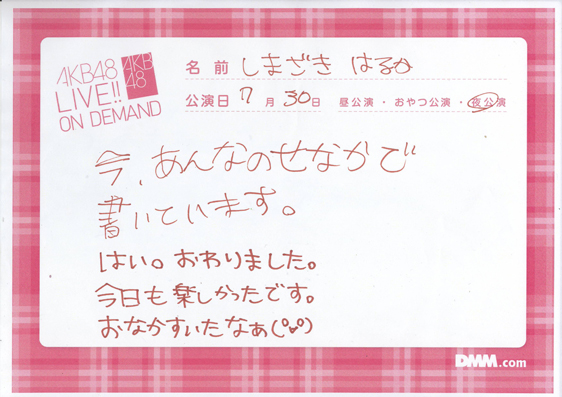 AKB48
LIVE!!
ON DEMAND
AKB
48
名前 しまざき はるか
公演日 7月30日 昼公演・おやつ公演・夜公演
今、あんなのせなかで
書いています。
はい。おわりました。
今日も楽しかったです。
おなかすいたなぁ(°ω°)
DMM.com